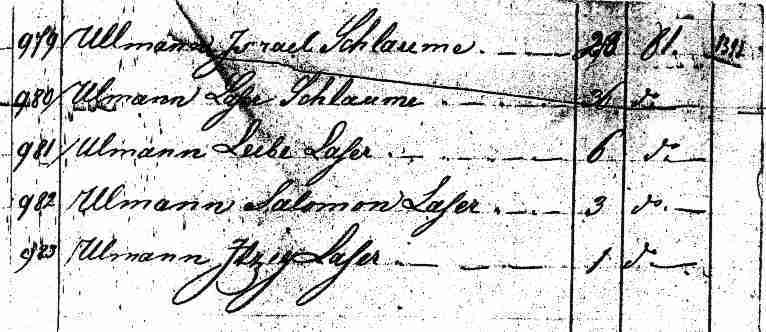 979 Ullmann Israel Schlaume. 28 81.
980 Ulmann Laser Schlaume 36 do
981 Ulmann Leibe Laser 6 do
982 Ullmann Salomon Laser 3 do.
983 Ullmann Itzig Laser 1 do